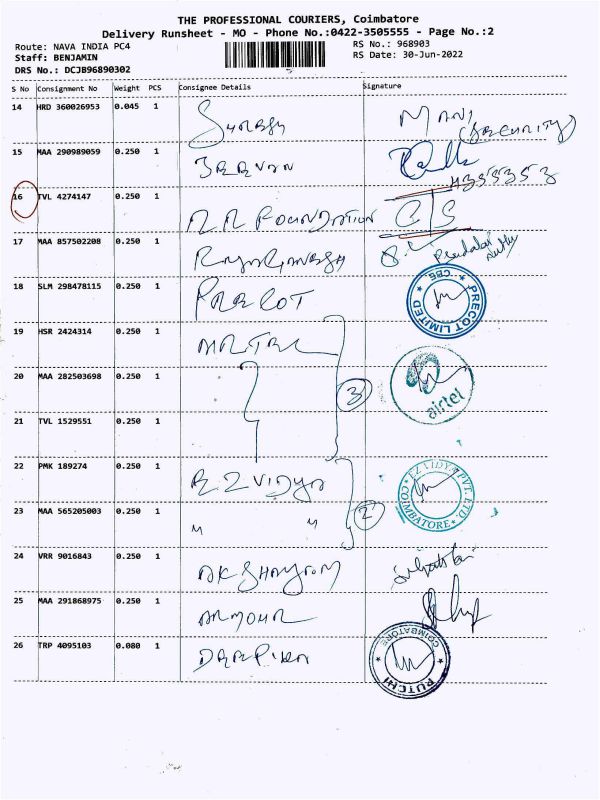 THE PROFESSIONAL COURIERS, Coimbatore
Delivery Runsheet - MO - Phone No.:0422-3505555 - Page No.:2
Route: NAVA INDIA PC4
RS No.: 968903
Staff: BENJAMIN
RS Date: 30-Jun-2022
DRS No.: DCJB96890302
S No Consignment No Weight PCS Consignee Details Signature
14 HRD 360026953 0.045 1 MANI
(SECURITY)
15 MAA 290989059 0.250 1
16 TVL 4274147 0.250 1 FOUNDATION CTS
17 MAA 857502208 0.250 1
18 SLM 298478115 0.250 1 PRECOT PRECOT LIMITED CBE
19 HSR 2424314 0.250 1
20 MAA 282503698 0.250 1 3 airtel
21 TVL 1529551 0.250 1
22 PMK 189274 0.250 1 EZ VIDYA EZ VIDYA PVT. LTD. COIMBATORE
23 MAA 565205003 0.250 1 " " 2
24 VRR 9016843 0.250 1
25 MAA 291868975 0.250 1 ARMOUR
26 TRP 4095103 0.080 1 COIMBATORE